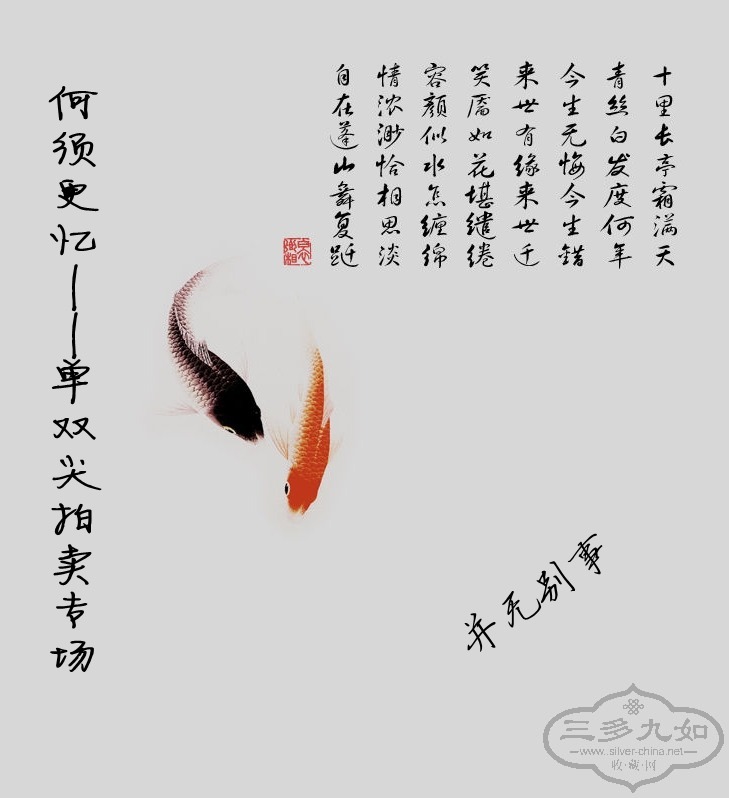 十里长亭霜满天
青丝白发度何年
今生无悔今生错
来世有缘来世迁
笑靥如花堪缱绻
容颜似水怎缠绵
情浓渺恰相思淡
自在蓬山舞复跹
何须更忆——单双尖拍卖专场
并无别事
三多九如
www.silver-china.net
收·藏·网